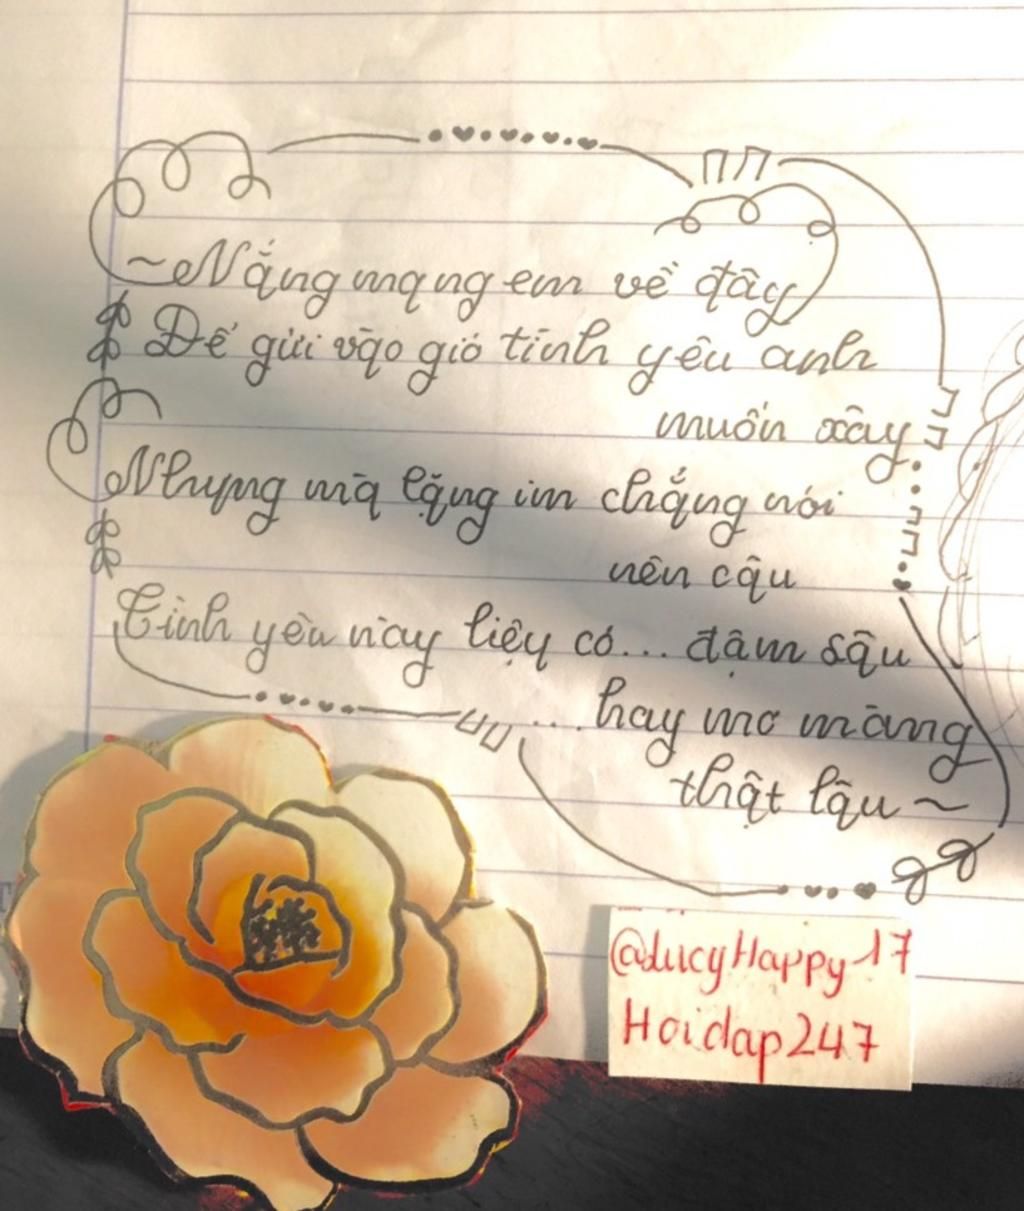 ~Nắng mang em về đây
Để gửi vào gió tình yêu anh
muốn xây
Nhưng mà lặng im chẳng nói
nên câu
Tình yêu này liệu có... đậm sâu
... hay mơ màng
thật lâu ~
@LucyHappy17
Hoidap247